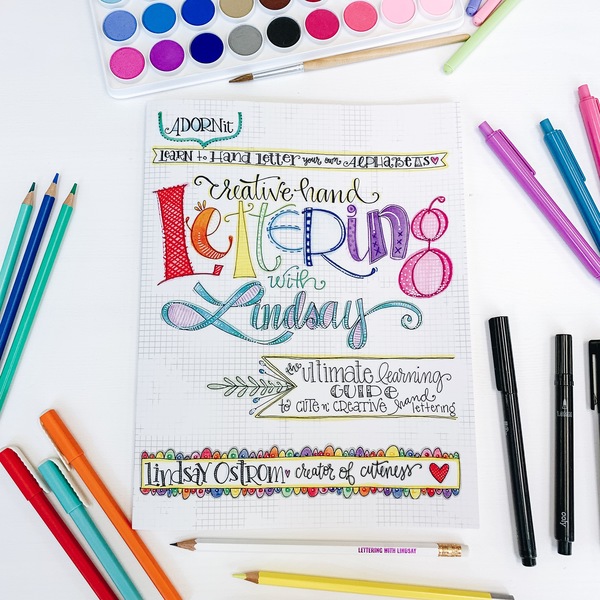 ADORNit
LEARN to Hand Letter your own ALPHABETS
creative-hand
LETTERING
with
Lindsay
the ultimate learning
GUIDE
to CUTE n' CREATIVE hand
lettering
LINDSAY OSTROM creator of cuteness
LETTERING WITH LINDSAY
ooly